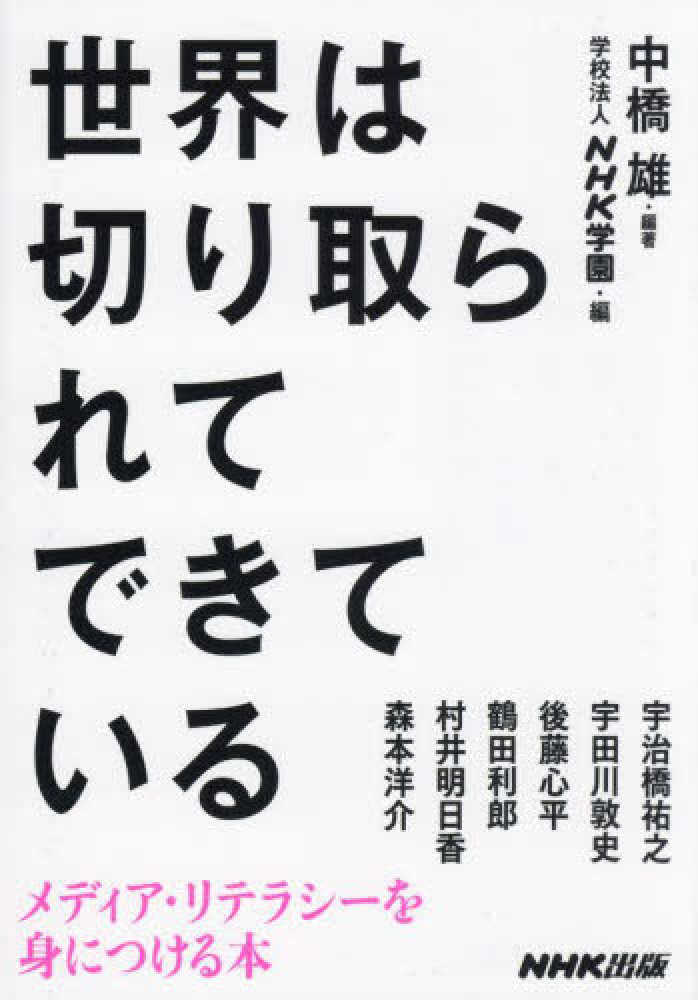 世界は
切り取ら
れて
できて
いる
中橋 雄・編著
学校法人 NHK学園・編
宇治橋祐之
宇田川敦史
後藤心平
鶴田利郎
村井明日香
森本洋介
メディア・リテラシーを
身につける本
NHK出版